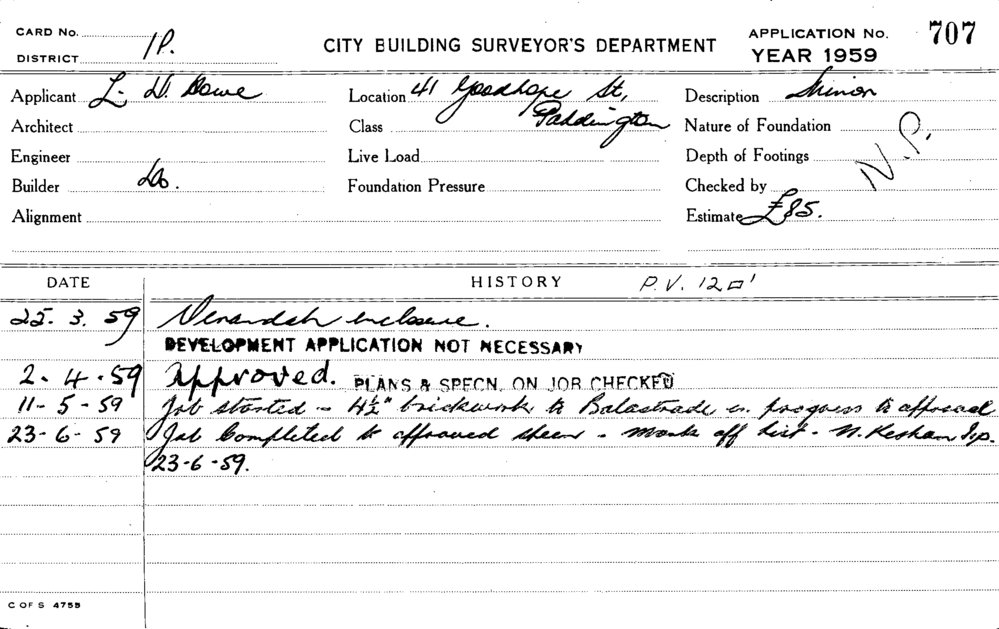 CARD No.
DISTRICT 1P.
CITY BUILDING SURVEYOR'S DEPARTMENT
APPLICATION No. 707
YEAR 1959
Applicant L. D. Howe
Location 41 Goodhope St, Paddington
Description Minor
Architect
Class
Nature of Foundation
Engineer
Live Load
Depth of Footings N.P.
Builder Do.
Foundation Pressure
Checked by
Alignment
Estimate £85.
DATE HISTORY P.V. 12□'
25. 3. 59 Verandah enclosure.
DEVELOPMENT APPLICATION NOT NECESSARY
2. 4. 59 Approved. PLANS & SPECN. ON JOB CHECKED
11-5-59 Job started - 4½" brickwork to Balastrade in progress to approval
23-6-59 Job Completed to approved - mark off list - N.
23-6-59.
C OF S 4755